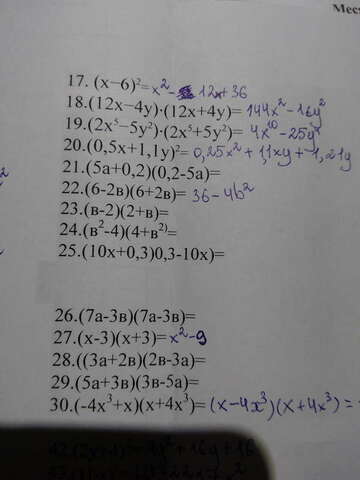 Мес
17. (х–6)²= x² - 12x+36
18.(12х–4у)·(12х+4у)= 144x² - 16y²
19.(2х⁵–5у²)·(2х⁵+5у²)= 4x¹⁰ - 25y⁴
20.(0,5х+1,1у)²= 0,25x² + 1,1xy + 1,21y
21.(5а+0,2)(0,2-5а)=
22.(6-2в)(6+2в)= 36 - 4b²
23.(в-2)(2+в)=
24.(в²-4)(4+в²⁾=
25.(10х+0,3)0,3-10х)=
26.(7а-3в)(7а-3в)=
27.(х-3)(х+3)= x² - 9
28.((3а+2в)(2в-3а)=
29.(5а+3в)(3в-5а)=
30.(-4х³+х)(х+4х³)= (x - 4x³)(x + 4x³) =